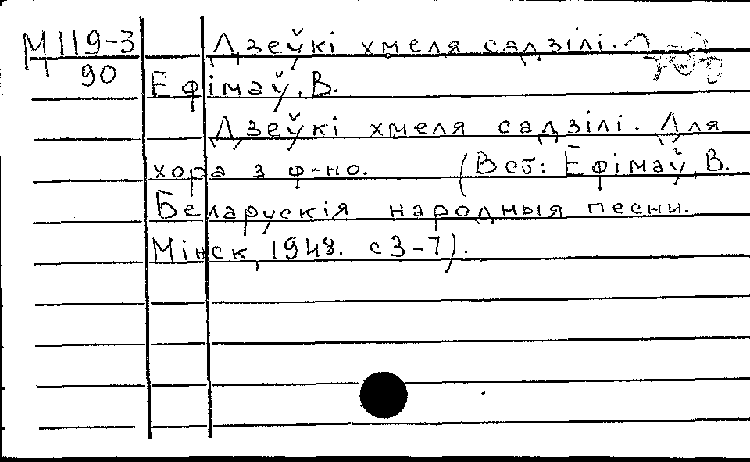 М119-3
90
Дзеўкі хмеля садзілі.
Ефімаў, В.
Дзеўкі хмеля садзілі. Для
хора з ф-но. (В сб: Ефімаў, В.
Беларускія народныя песни.
Мінск, 1948. с 3-7).